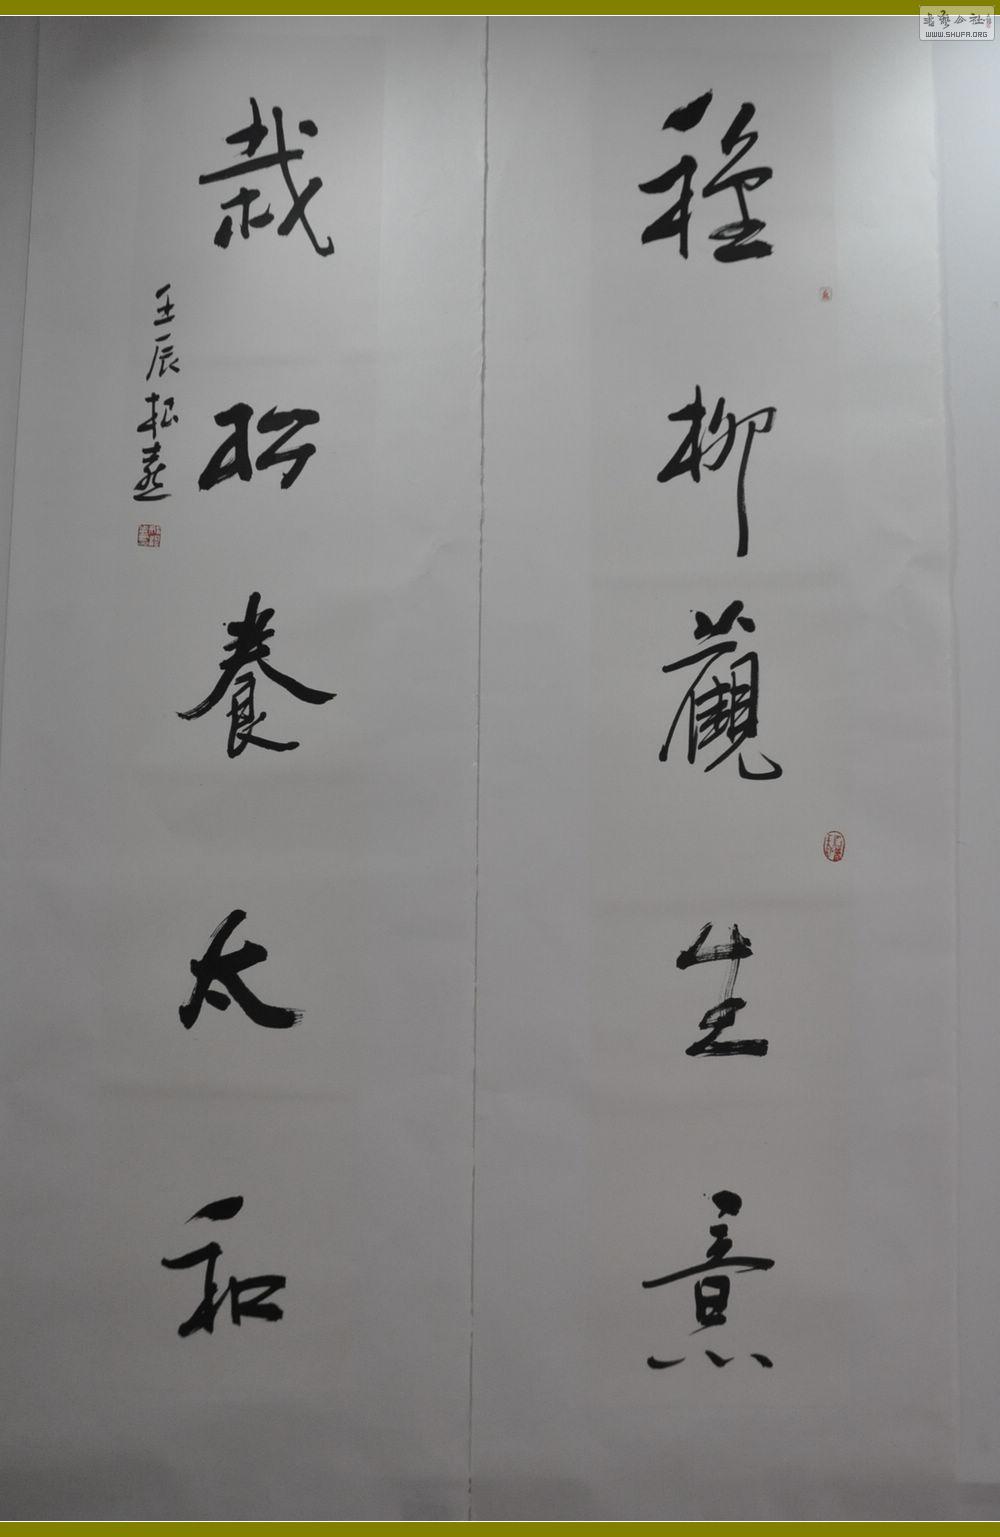 種柳觀生意
栽松養太和
壬辰松熹
書藝公社
WWW.SHUFA.ORG